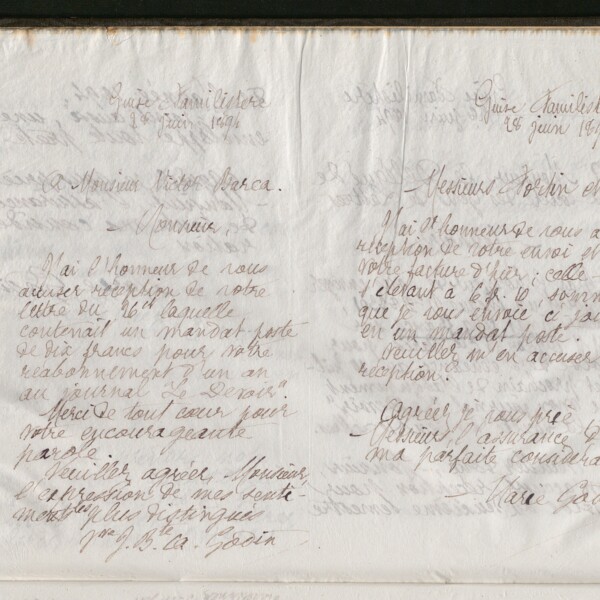 Guise Familistère
28 juin 1894
A Monsieur Victor Barca.
Monsieur,
J'ai l'honneur de vous
accuser réception de votre
lettre du 26 et laquelle
contenait un mandat poste
de dix francs pour votre
réabonnement d'un an
au journal "Le Devoir".
Merci de tout cœur pour
votre encourageante
parole.
Veuillez agréer, Monsieur,
l'expression de mes senti-
ments les plus distingués
Vve J. Bte A. Godin
Guise Familist
28 juin 189
Messieurs Fortin et
J'ai l'honneur de vous a
réception de votre envoi et
votre facture d'hier; celle
s'élevant à 6 fr. 10, somm
que je vous envoie ci joi
en un mandat poste.
Veuillez m'en accuser
réception.
Agréez je vous prie
Messieurs, l'assurance d
ma parfaite considéra
Marie God